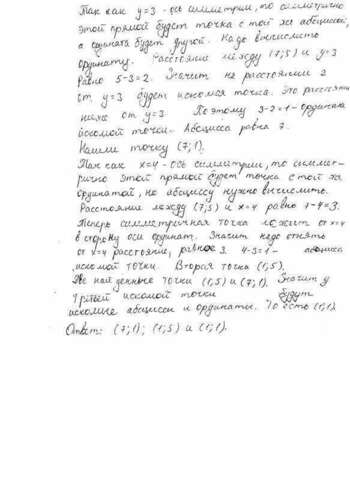 Так как y=3 - ось симметрии, то симметрично
этой прямой будет точка с той же абсциссой,
а ордината будет другой. Надо вычислить
ординату. Расстояние между (7;5) и y=3
равно 5-3=2. Значит на расстоянии 2
от y=3 будет искомая точка. Это расстояние
ниже от y=3. Поэтому 3-2=1 - ордината
искомой точки. Абсцисса равна 7.
Нашли точку (7;1).
Так как x=4 - ось симметрии, то симмет-
рично этой прямой будет точка с той же
ординатой, но абсциссу нужно вычислить.
Расстояние между (7;5) и x=4 равно 7-4=3.
Теперь симметричная точка лежит от x=4
в сторону оси ординат. Значит надо отнять
от x=4 расстояние, равное 3. 4-3=1 - абсцисса
искомой точки. Вторая точка (1;5).
Две найденные точки (1;5) и (7;1). Значит у
третьей искомой точки будут
искомые абсциссы и ординаты. То есть (1;1).
Ответ: (7;1); (1;5) и (1;1).